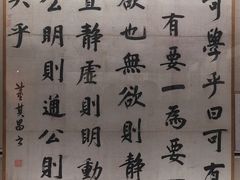 可學乎曰可有
有要一為要
欲也無欲則靜
直靜虛則明動
公明則通公則
矣乎
董其昌書